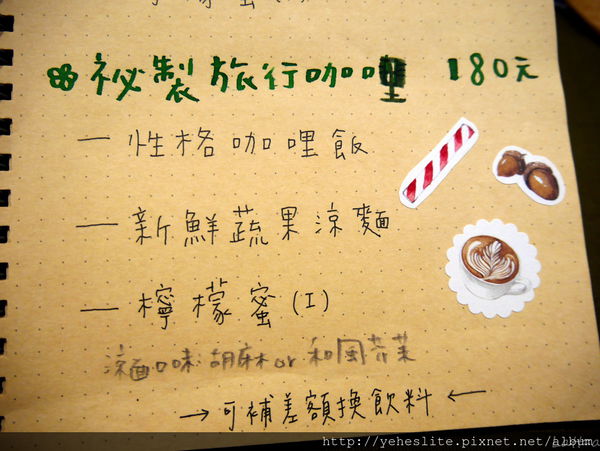 祕製旅行咖哩 180元
一 性格咖哩飯
一 新鮮蔬果涼麵
一 檸檬蜜(I)
涼面口味:胡麻 or 和風芥茉
→可補差額換飲料←
http://yeheslite.pixnet.net/album